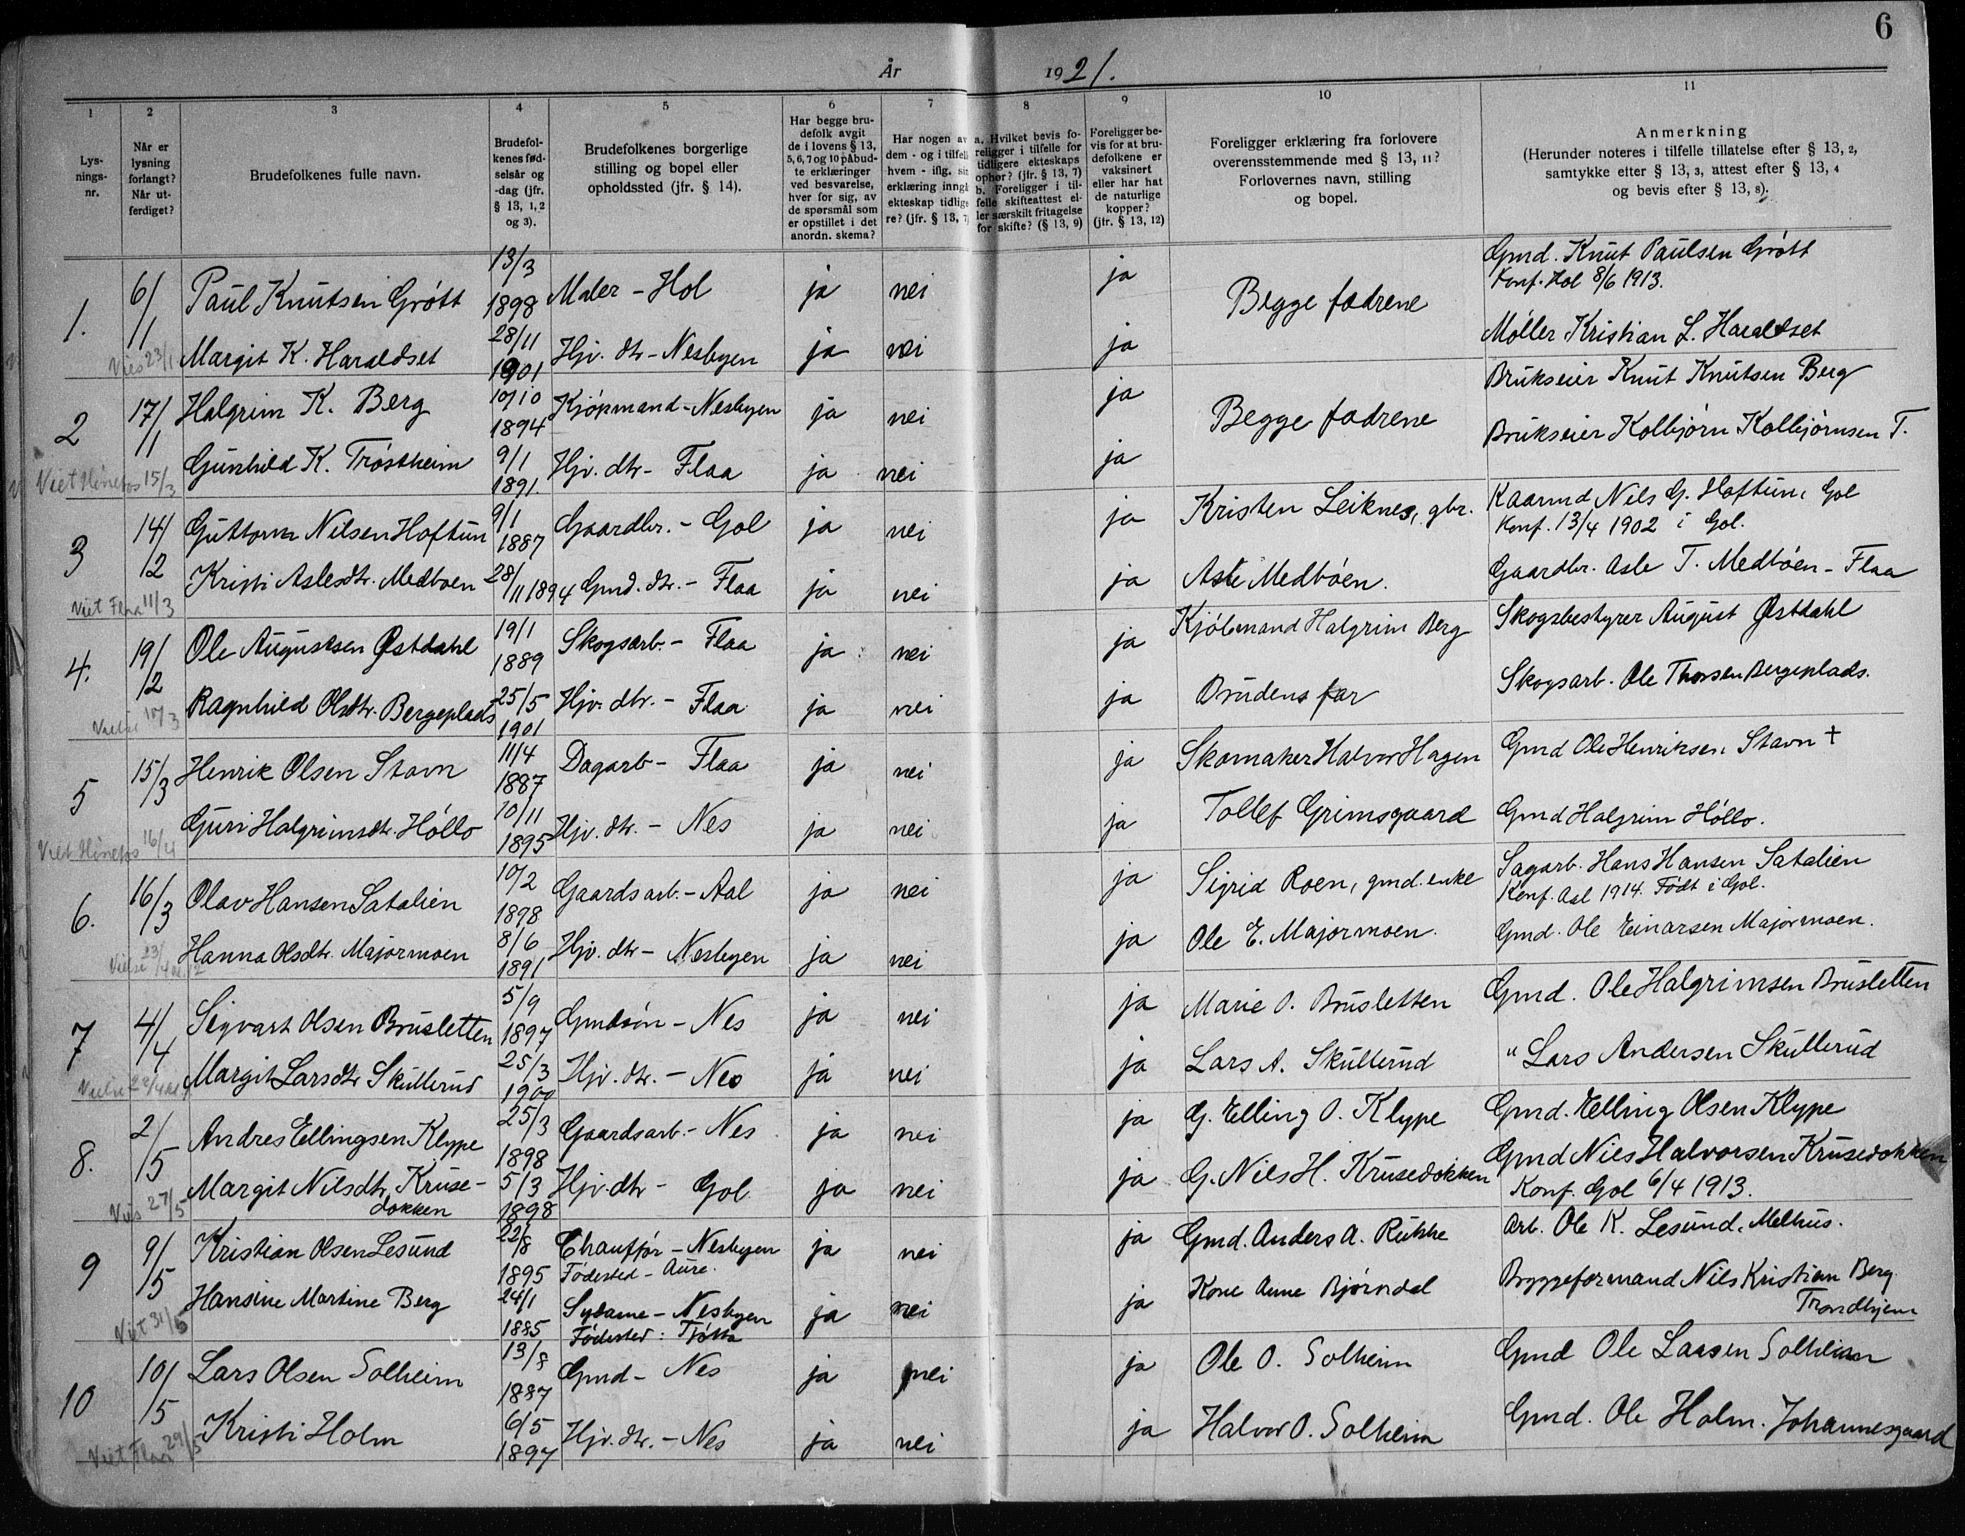 6
År 1921.
1 2 3 4 5 6 7 8 9 10 11
Lysnings-nr.
Når er lysning forlangt? Når utferdiget?
Brudefolkenes fulle navn.
Brudefolkenes fødselsår og -dag (jfr. § 13, 1, 2 og 3).
Brudefolkenes borgerlige stilling og bopel eller opholdssted (jfr. § 14).
Har begge brudefolk avgit de i lovens § 13, 5, 6, 7 og 10 påbudte erklæringer ved besvarelse, hver for sig, av de spørsmål som er opstillet i det anordn. skema?
Har nogen av dem - og i tilfelle hvem - iflg. sin erklæring inngått ekteskap tidligere? (jfr. § 13, 7)
a. Hvilket bevis foreligger i tilfelle for tidligere ekteskaps ophør? (jfr. § 13, 7) b. Foreligger i tilfelle skifteattest eller særskilt fritagelse for skifte? (§ 13, 9)
Foreligger bevis for at brudefolkene er vaksinert eller har hat de naturlige kopper? (jfr. § 13, 12)
Foreligger erklæring fra forlovere overensstemmende med § 13, 11? Forlovernes navn, stilling og bopel.
Anmerkning (Herunder noteres i tilfelle tillatelse efter § 13, 2, samtykke etter § 13, 3, attest efter § 13, 4 og bevis efter § 13, 8).
1. 6/1 Paul Knutsen Grøtt 13/3 1898 Maler - Hol ja nei ja Begge fædrene Gmd. Knut Paulsen Grøtt
Konf. Hol 8/6 1913.
Viet 23/1 Margit K. Haraldset 28/11 1901 Hjv. dtr - Nesbyen ja nei ja Møller Kristian L. Haraldset
2 17/1 Halgrim K. Berg 10/10 1894 Kjøpmand - Nesbyen ja nei ja Begge fædrene Brukseier Knut Knutsen Berg
Viet Hønefos 15/3 Gunhild K. Trøstheim 9/1 1891. Hjv. dtr - Flaa ja nei ja Brukseier Kolbjørn Kolbjørnsen T.
3 14/2 Guttorm Nilsen Hoftun 9/1 1887 Gaardbr. - Gol ja nei ja Kristen Leiknes, gbr. Kaarmd Nils G. Hoftun, Gol
Konf. 13/4 1902 i Gol.
Viet Flaa 11/3 Kristi Aslesdtr. Medbøen 28/11 1894 Gmd. dtr. - Flaa ja nei ja Asle Medbøen. Gaardbr. Asle T. Medbøen - Flaa
4. 19/2 Ole Augustsen Østdahl 19/1 1889 Skogsarb. - Flaa ja nei ja Kjøbmand Halgrim Berg Skogsbestyrer August Østdahl
Vielse 10/3 Ragnhild Olsdtr. Bergeplads 25/5 1901 Hjv. dtr. - Flaa ja nei ja Brudens far Skogsarb. Ole Thorsen Bergeplads.
5 15/3 Henrik Olsen Stavn 11/4 1887 Dagarb - Flaa ja nei ja Skomaker Halvor Hagen Gmd Ole Henriksen Stavn †
Viet Hønefos 16/4 Guri Halgrimsdtr. Høllo 10/11 1895 Hjv. dtr. - Nes ja nei ja Tollef Grimsgaard Gmd Halgrim Høllo.
6. 16/3 Olav Hansen Satalien 10/2 1898 Gaardsarb. - Aal ja nei ja Sigrid Roen, gmd. enke Sagarb. Hans Hansen Satalien
Konf. Aal 1914. Født i Gol.
Vielse 23/4 Hanna Olsdtr. Majormoen 8/6 1891 Hjv. dtr - Nesbyen ja nei ja Ole E. Majormoen. Gmd. Ole Einarsen Majormoen.
7 4/4 Sigvart Olsen Brusletten 5/9 1897 Gmdsøn - Nes ja nei ja Marie O. Brusletten Gmd. Ole Halgrimsen Brusletten
Vielse Margit Larsdtr Skullerud 25/3 1900 Hjv. dtr. - Nes ja nei ja Lars A. Skullerud " Lars Andersen Skullerud
8. 2/5 Andres Ellingsen Klype 25/3 1898 Gaardsarb. - Nes ja nei ja G. Elling O. Klype Gmd. Elling Olsen Klype
Vies 27/5 Margit Nilsdtr Krusedokken 5/3 1898 Hjv. dtr - Gol ja nei ja G. Nils H. Krusedokken Gmd Nils Halvorsen Krusedokken
Konf. Gol 6/4 1913.
9 9/5 Kristian Olsen Lesund 22/8 1895 Chauffør - Nesbyen ja nei ja Gmd. Anders A. Rukke Arb. Ole K. Lesund, Melhus.
Fødested - Aure.
Viet 31/5 Hansine Martine Berg 24/1 1885 Sydame - Nesbyen ja nei ja Kone Anne Bjørndal Byggeformand Nils Kristian Berg
Fødested: Tjøtta Trondhjem
10 10/5 Lars Olsen Solheim 13/8 1887 Gmd - Nes ja nei ja Ole O. Solheim Gmd Ole Larsen Solheim
Viet Flaa 29/5 Kristi Holm 6/5 1897 Hjv. dtr. - Nes ja nei ja Halvor O. Solheim Gmd. Ole Holm. Johannesgaard